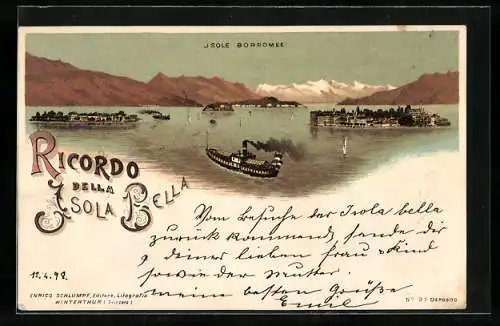 ISOLE BORROMEE
RICORDO
DELLA
ISOLA BELLA
Vom Besuche der Isola bella
zurück kommend, sende dir
& deiner lieben Frau & Kind
sowie der Mutter
meine besten Grüße
Emil
11.4.98
ENRICO SCHLUMPF, Editore, Litografia
WINTERTHUR (Svizzera)
DEPOSTO